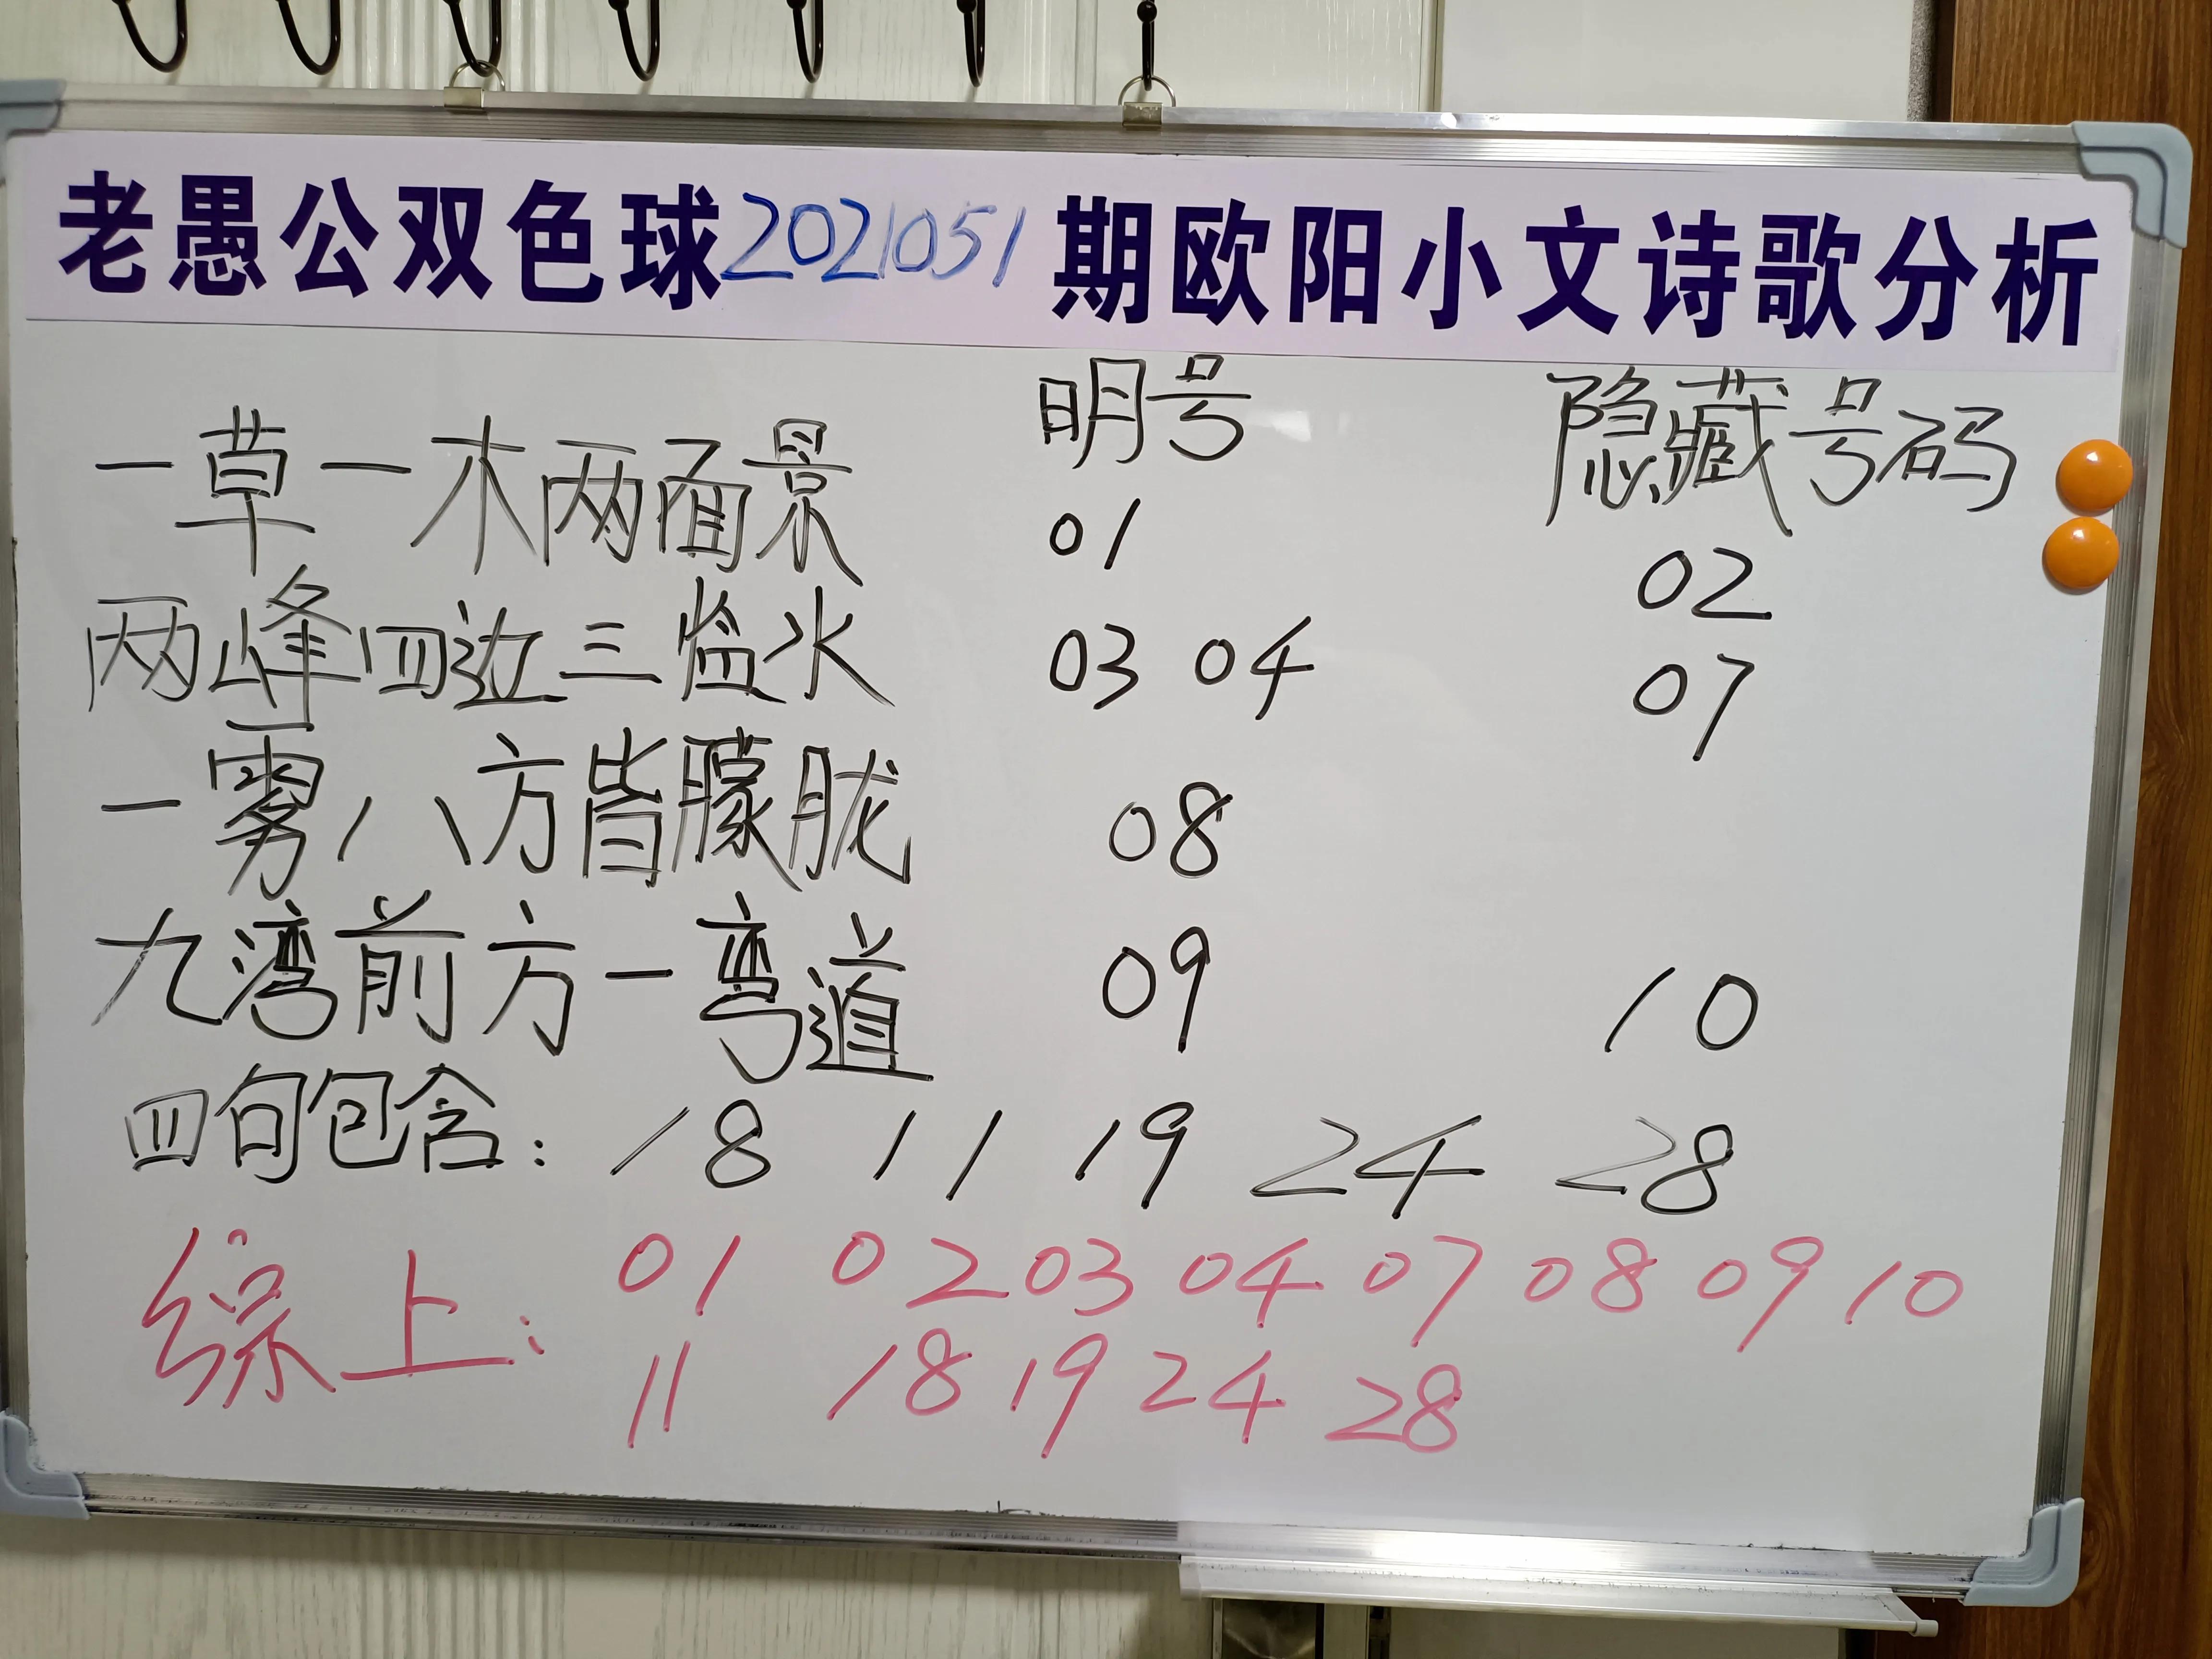 老愚公双色球2021051期欧阳小文诗歌分析
明号 隐藏号码
一草一木两面景 01 02
两峰四边三盆水 03 04 07
一雾八方皆朦胧 08
九湾前方一弯道 09 10
四句包含: 18 11 19 24 28
综上: 01 02 03 04 07 08 09 10
11 18 19 24 28